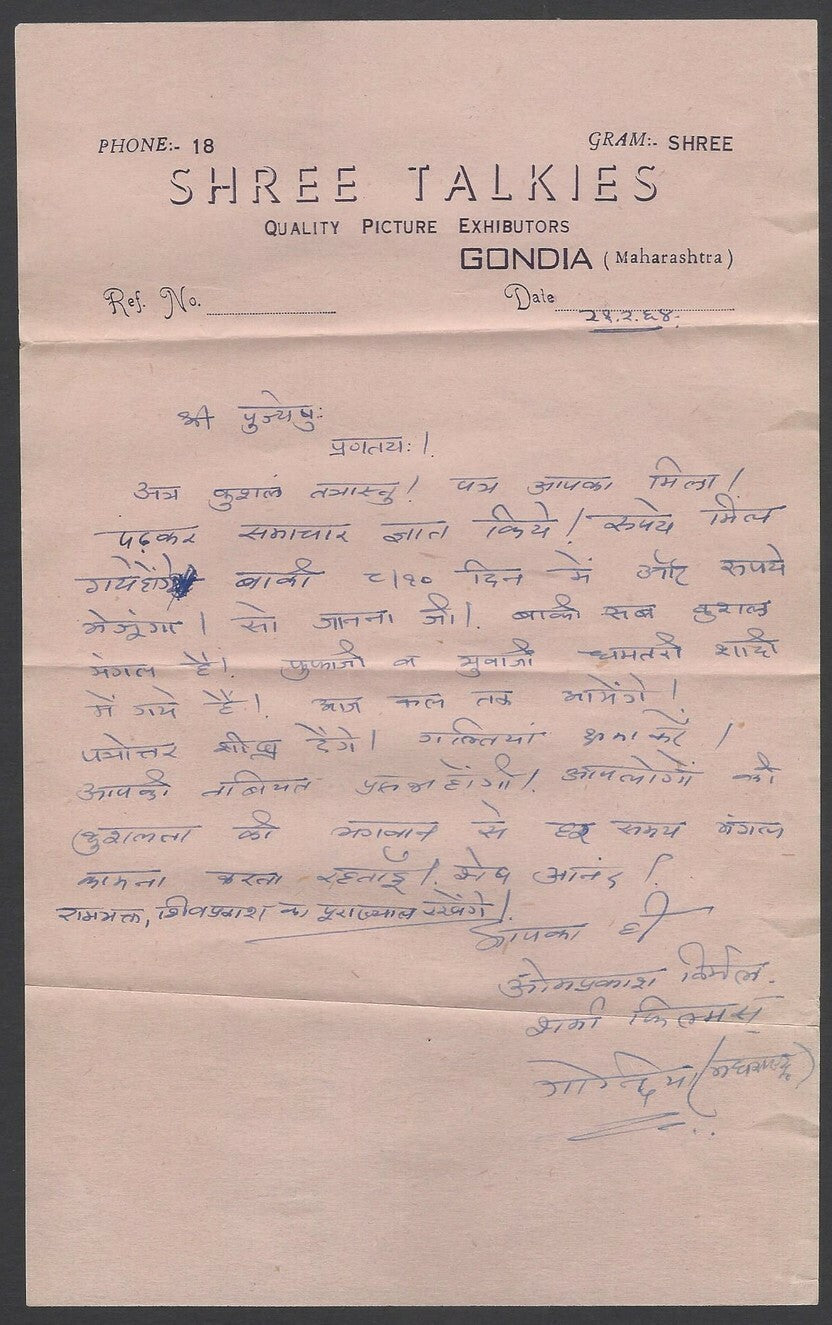 PHONE:- 18
GRAM:- SHREE
SHREE TALKIES
QUALITY PICTURE EXHIBUTORS
GONDIA ( Maharashtra )
Ref. No.
Date
२१.२.६४.
श्री पुज्येषु:
प्रणतयः।
अत्र कुशलं तत्रास्तु! पत्र आपका मिला!
पढ़कर समाचार ज्ञात किये! रूपये मिल
गये होंगे बाकी ८/१० दिन में और रूपये
भेजूंगा। सो जानना जी। बाकी सब कुशल
मंगल है। फुफाजी व भुवाजी धमतरी शादी
में गये है। आज कल तक आयेंगे!
पत्रोत्तर शीघ्र देंगे। गल्तियां क्षमा करें /
आपकी तबियत प्रसन्न होंगी! आपलोगों की
कुशलता की भगवान से हर समय मंगल
कामना करता रहताहूँ। शेष आनंद!
रामभक्त, शिवप्रकाश का पूरा ख्याल रखेंगे!
आपका ही
ओमप्रकाश
शर्मा फिल्मस्
गोन्दिया (महाराष्ट्र)